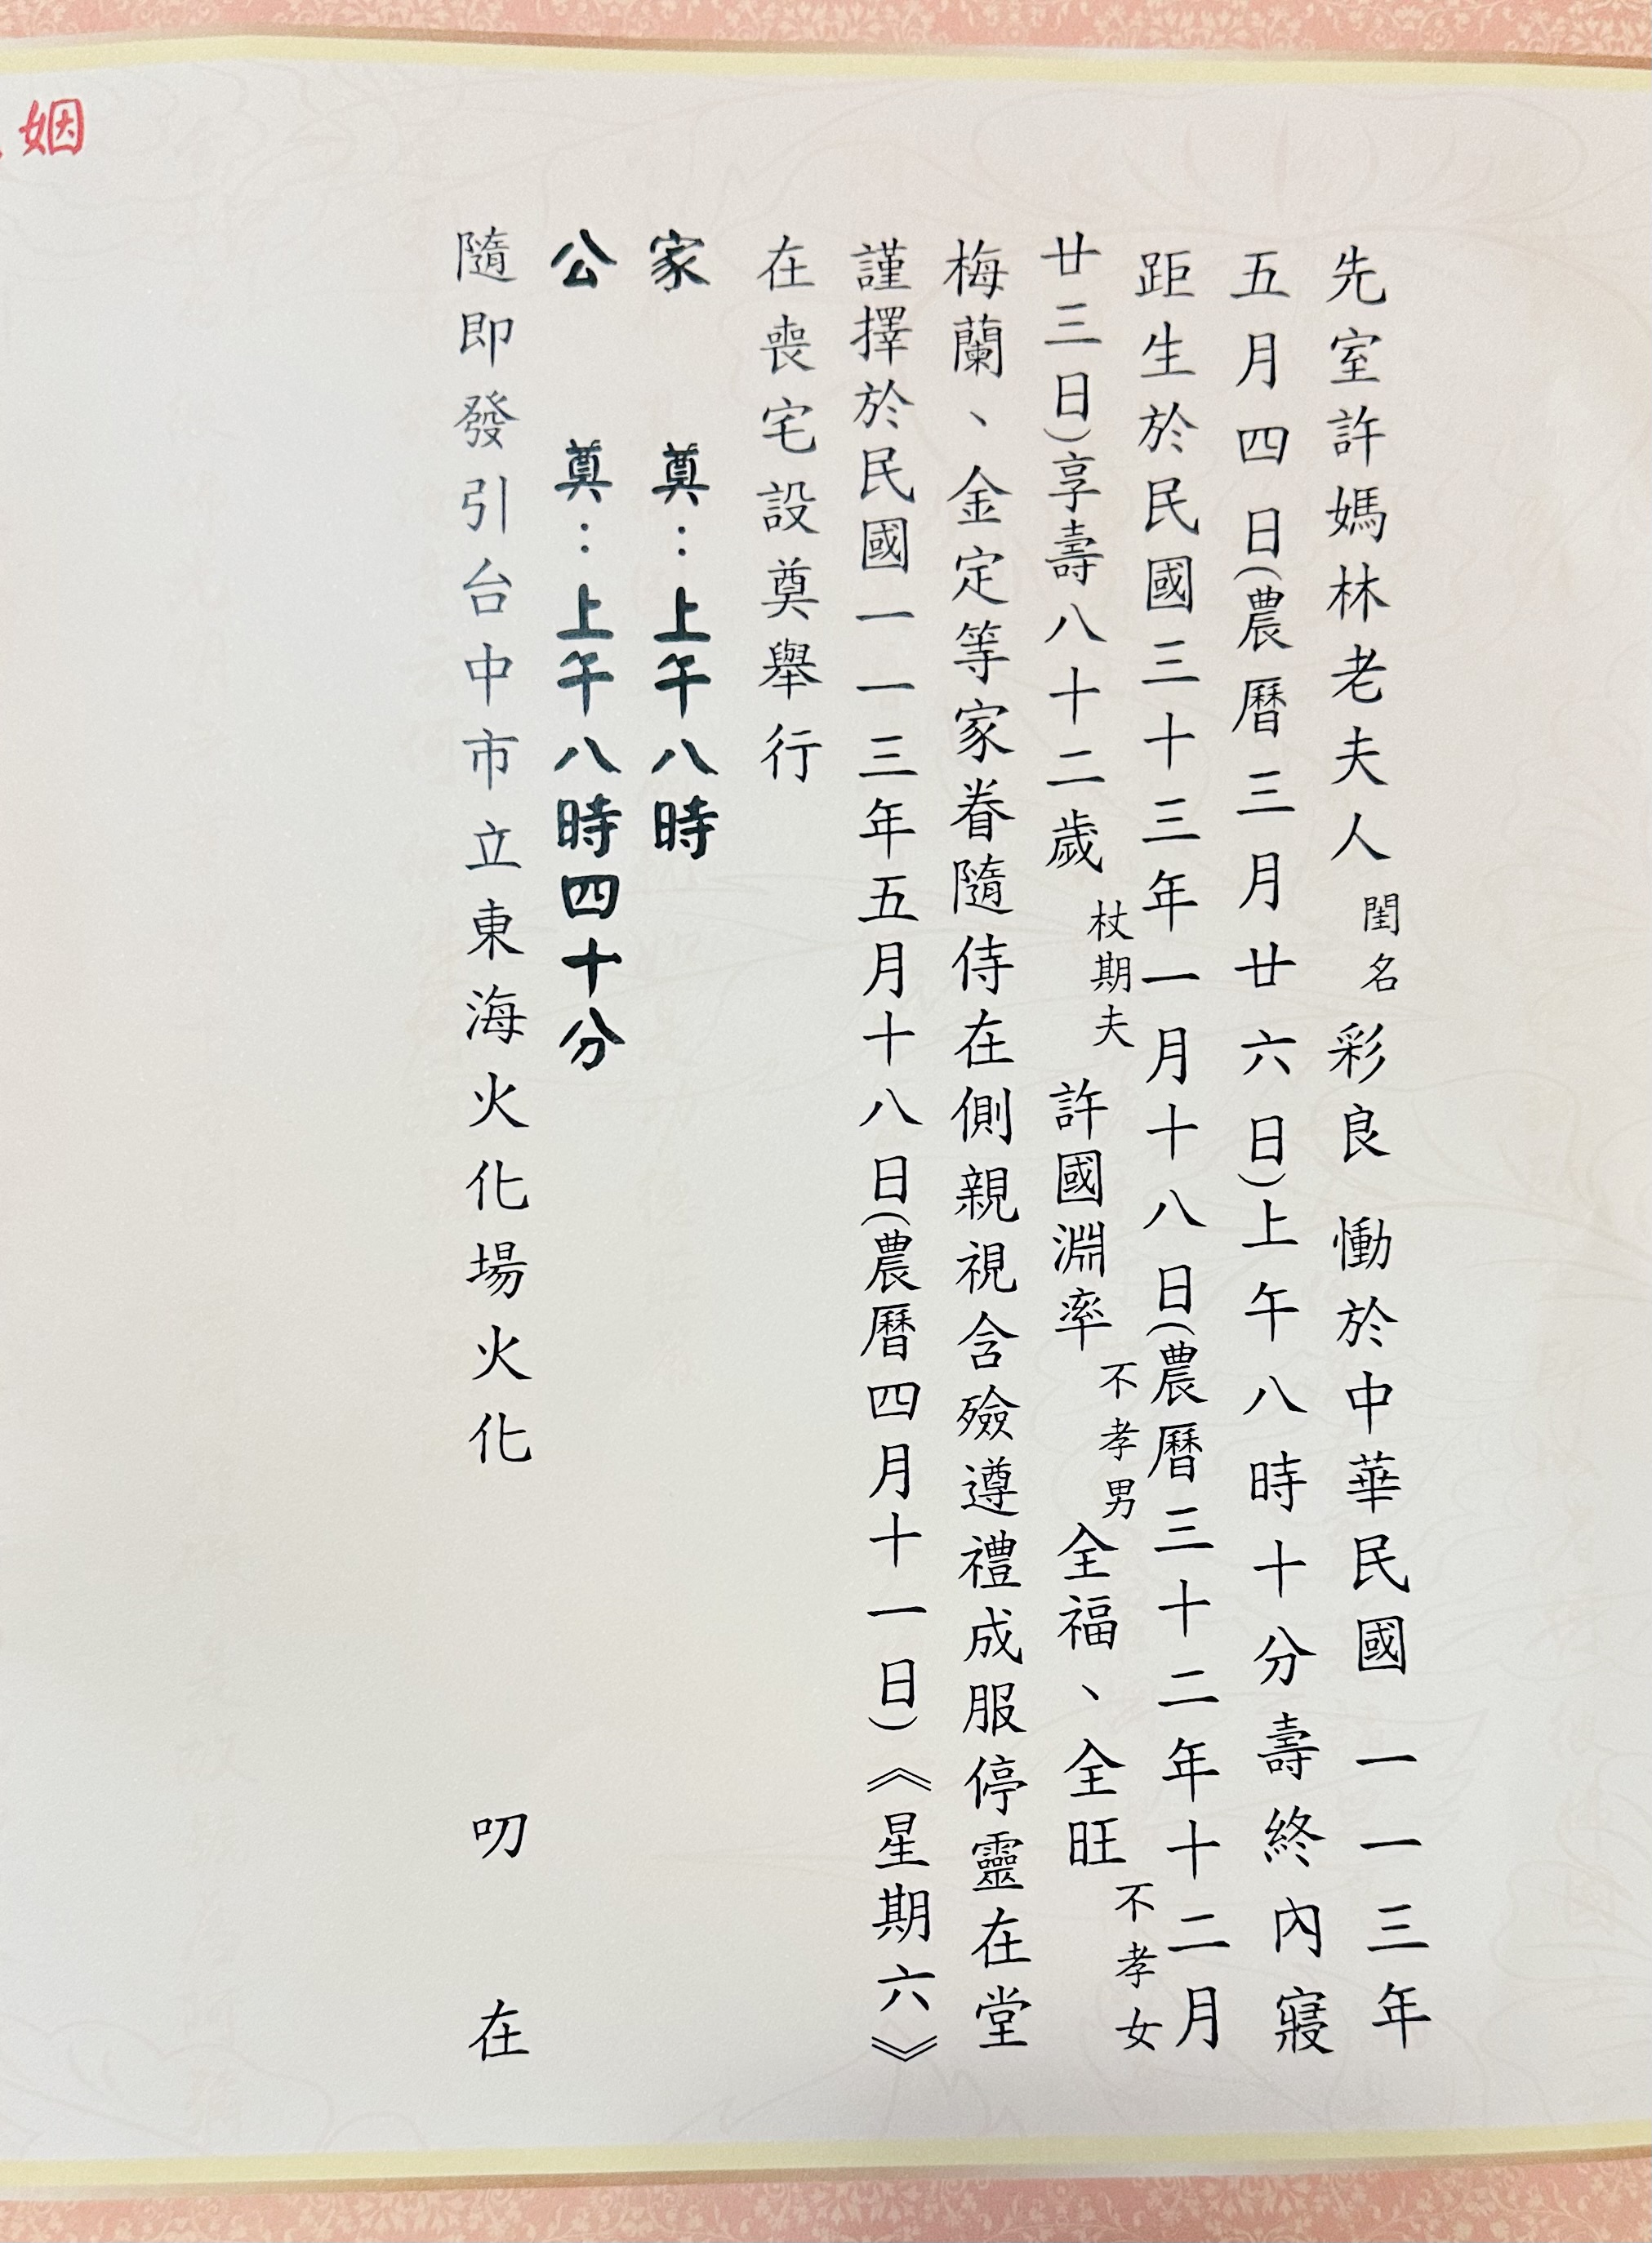 先室許媽林老夫人 閨名 彩良 慟於中華民國一一三年
五月四日(農曆三月廿六日)上午八時十分壽終內寢
距生於民國三十三年一月十八日(農曆三十二年十二月
廿三日)享壽八十二歲 杖期夫 許國淵率 不孝男 全福、全旺 不孝女
梅蘭、金定等家眷隨侍在側親視含殮遵禮成服停靈在堂
謹擇於民國一一三年五月十八日(農曆四月十一日)《星期六》
在喪宅設奠舉行
家 奠:上午八時
公 奠:上午八時四十分
隨即發引台中市立東海火化場火化 叨 在
姻